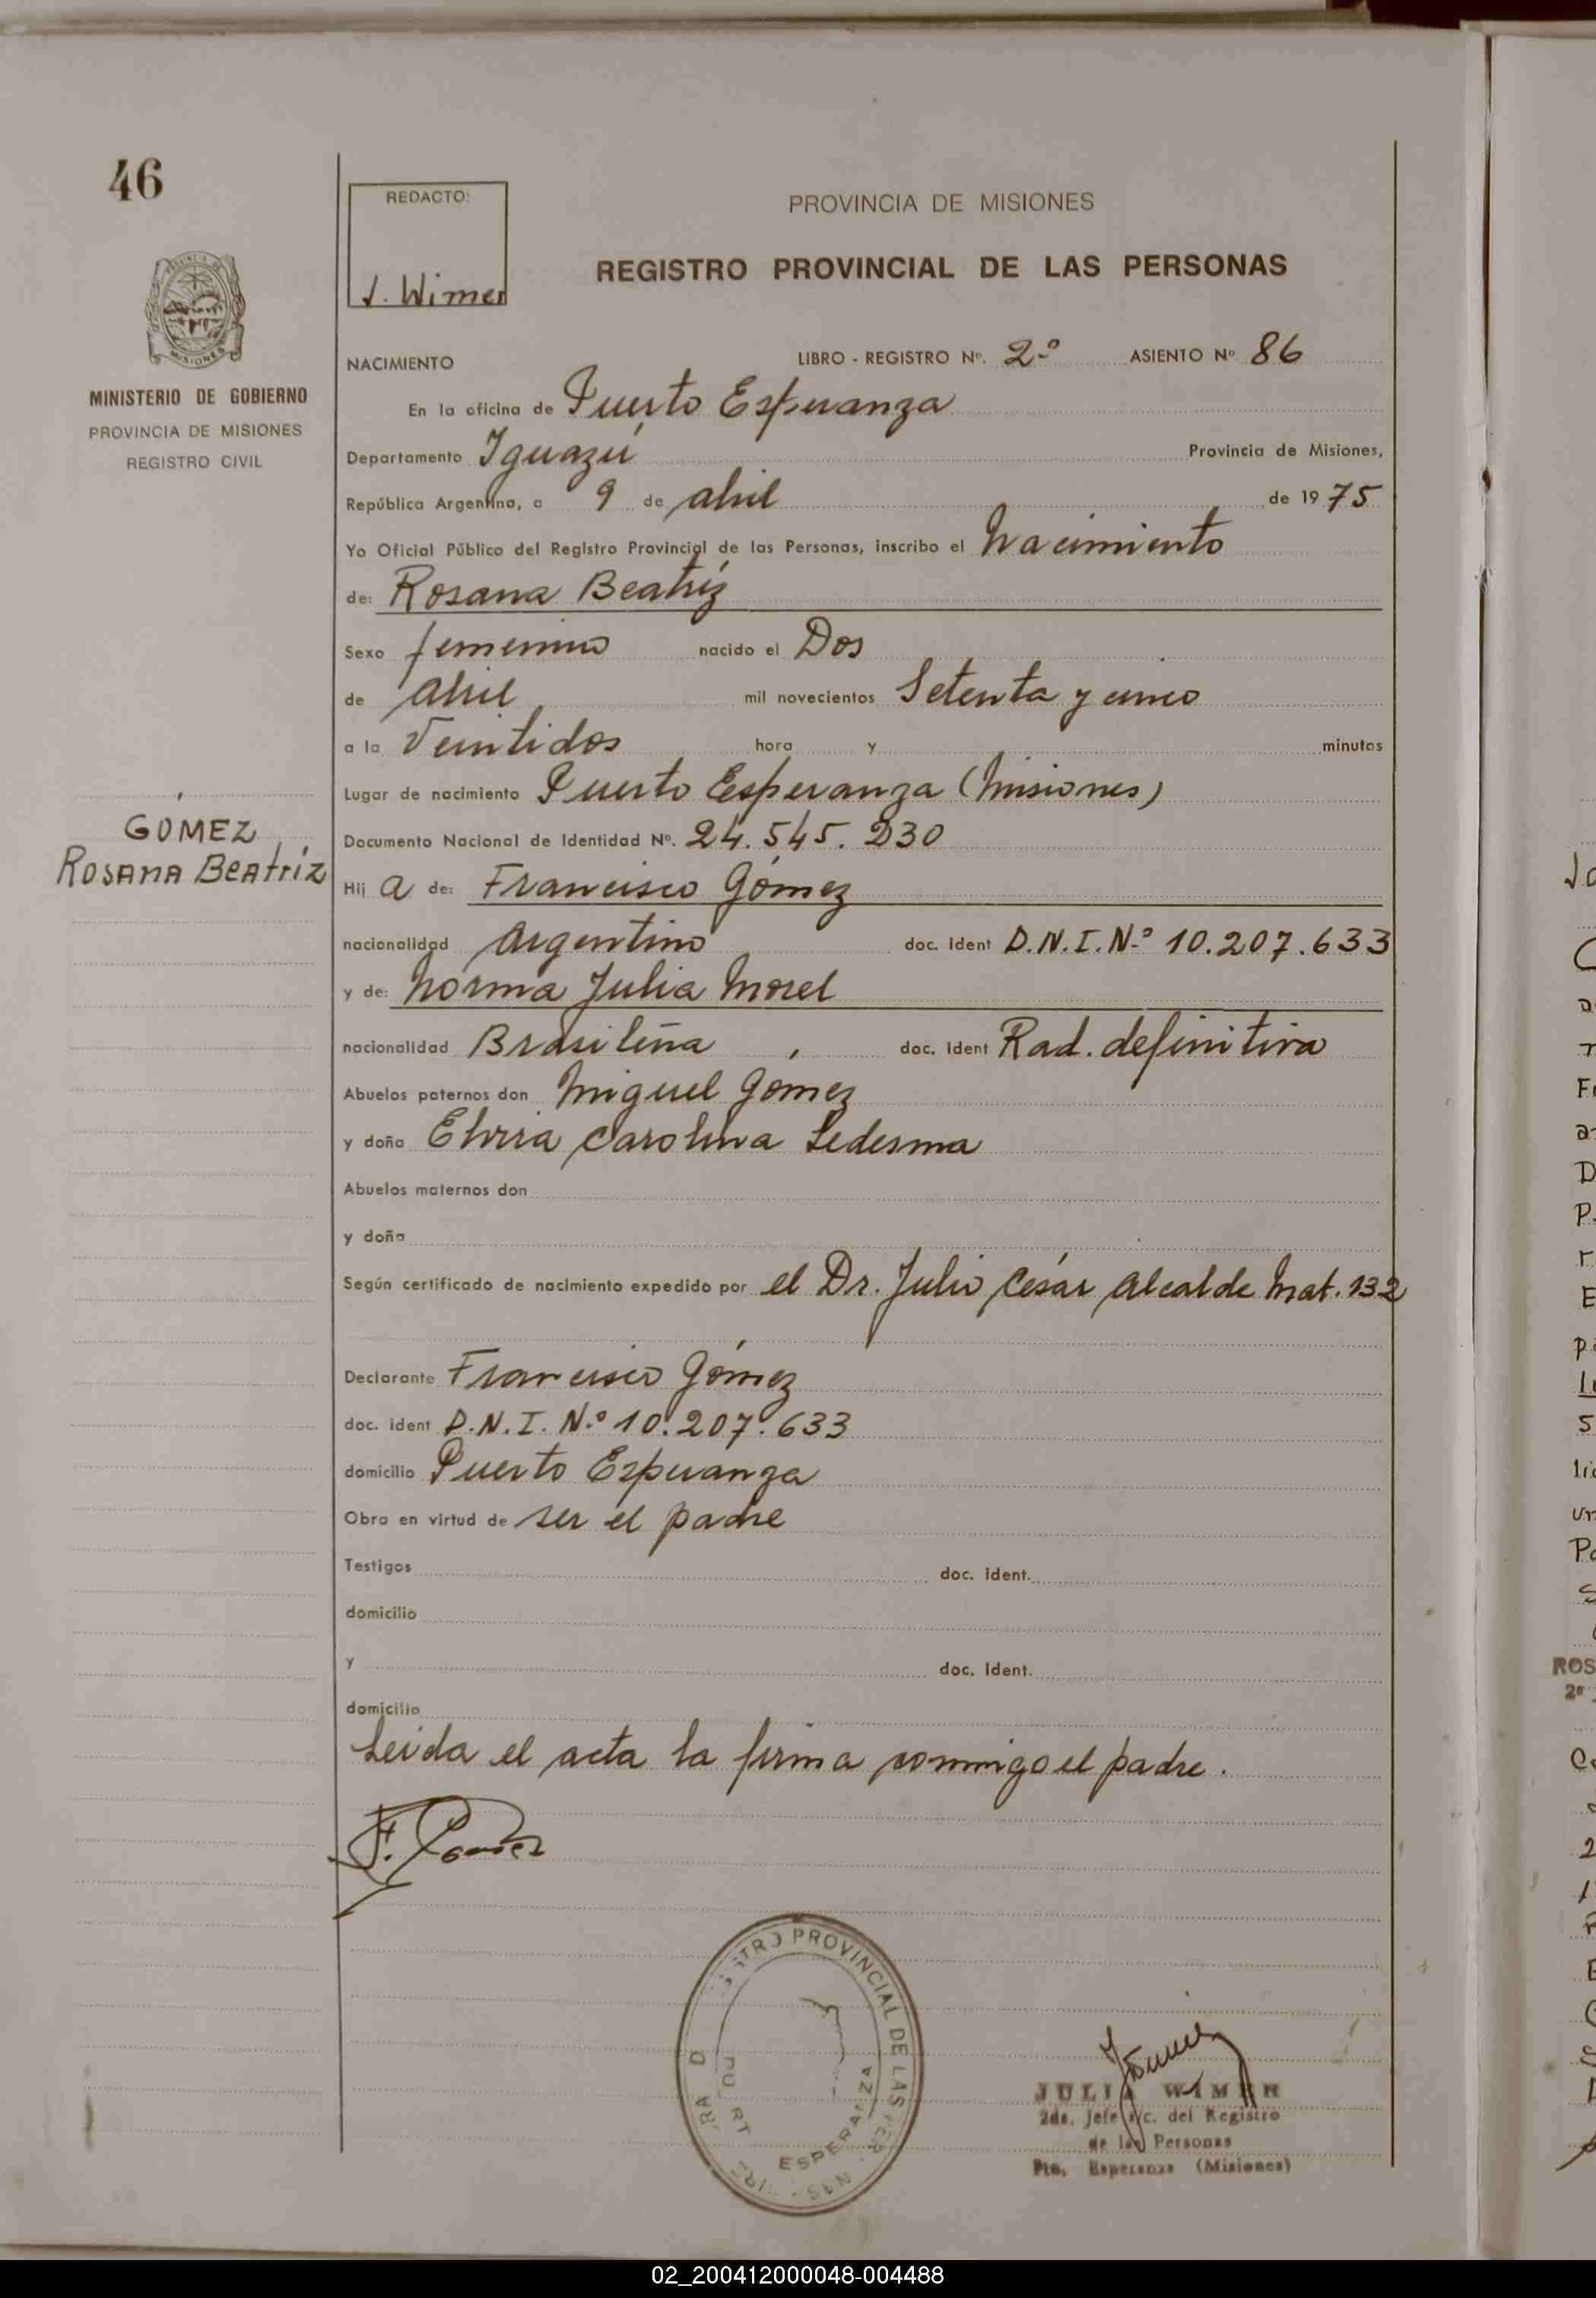 46
REDACTO:
J. Wimer
PROVINCIA DE MISIONES
REGISTRO PROVINCIAL DE LAS PERSONAS
MISIONES
MINISTERIO DE GOBIERNO
PROVINCIA DE MISIONES
REGISTRO CIVIL
NACIMIENTO LIBRO - REGISTRO Nº. 2º ASIENTO Nº 86
En la oficina de Puerto Esperanza
Departamento Iguazú Provincia de Misiones,
República Argentina, a 9 de abril de 19 75
Yo Oficial Público del Registro Provincial de las Personas, inscribo el Nacimiento
de: Rosana Beatríz
Sexo femenino nacido el Dos
de Abril mil novecientos Setenta y cinco
a la Veintidos hora y minutos
Lugar de nacimiento Puerto Esperanza (Misiones)
Documento Nacional de Identidad Nº. 24.545.230
GÓMEZ
ROSANA BEATRÍZ
Hij a de: Francisco Gómez
nacionalidad Argentino doc. ident D.N.I. Nº 10.207.633
y de: Norma Julia Morel
nacionalidad Brasileña doc. ident Rad. definitiva
Abuelos paternos don Miguel Gómez
y doña Elvira Carolina Ledesma
Abuelos maternos don
y doña
Según certificado de nacimiento expedido por el Dr. Julio César Alcalde Mat. 132
Declarante Francisco Gómez
doc. ident D.N.I. Nº 10.207.633
domicilio Puerto Esperanza
Obra en virtud de ser el padre
Testigos doc. ident.
domicilio
y doc. ident.
domicilio
Leida el acta la firma conmigo el padre.
F. Gomez
PROVINCIAL DE LAS
ESPERANZA
JULIA WIMER
2da. Jefe a/c. del Registro
de las Personas
Pto. Esperanza (Misiones)
02_200412000048-004488